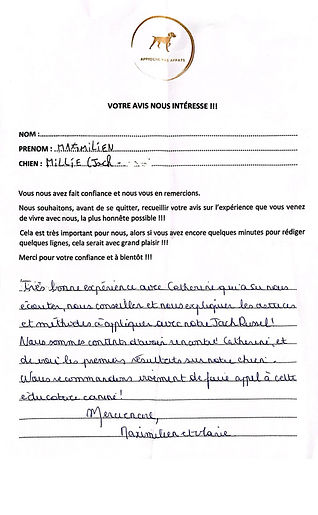 VOTRE AVIS NOUS INTÉRESSE !!!
NOM :
PRENOM : MAXIMILIEN
CHIEN : MILLIE (Jack
Vous nous avez fait confiance et nous vous en remercions.
Nous souhaitons, avant de se quitter, recueillir votre avis sur l'expérience que vous venez
de vivre avec nous, la plus honnête possible !!!
Cela est très important pour nous, alors si vous avez encore quelques minutes pour rédiger
quelques lignes, cela serait avec grand plaisir !!!
Merci pour votre confiance et à bientôt !!!
Très bonne expérience avec Catherine qui a su nous
écouter, nous conseiller et nous expliquer les astuces
et méthodes à appliquer avec notre Jack Russel!
Nous sommes contents d'avoir rencontré Catherine, et
de voir les premiers résultats sur notre chien.
Nous recommandons vivement de faire appel à cette
éducatrice canine!
Merci encore,
Maximilien et Marie